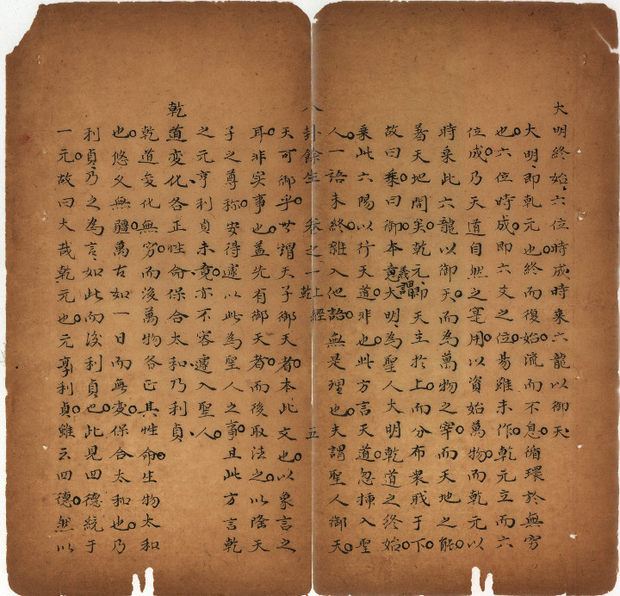 大明終始六位時成時乘六龍以御天
大明即乾元也終而復始流而不息循環於無窮
也六位時成即六爻之位易雖未作乾元立而六
位成乃天道自然之運用以資始萬物而乾元以
時乘此六龍以御天而為萬物之宰而天地之能
著天地間矣乾元即天主於上而分布衆職于下
故曰乘曰御本義謂大明為聖人大明乾道之終始
乘此六陽以行天道非也此方言天道忽揷入聖
人一語未終雜入他語無是理也夫謂聖人御天
八卦餘生 卷之一 乾上經 五
天可御乎世謂天子御天者本此文也以象言之
耳非实事也盖先有御天者而後取法之以隆天
子之尊称安得遽以此為聖人之事且此方言乾
之元亨利貞未竟亦不容遽入聖人
乾道變化各正性命保合太和乃利貞
乾道変化無穷而後萬物各正其性命生物太和
也悠久無疆萬古如一日而無变保合太和也乃
利貞乃之為言如此而後利貞也此見四德統于
一元故曰大哉乾元也元亨利貞雖云四德然以